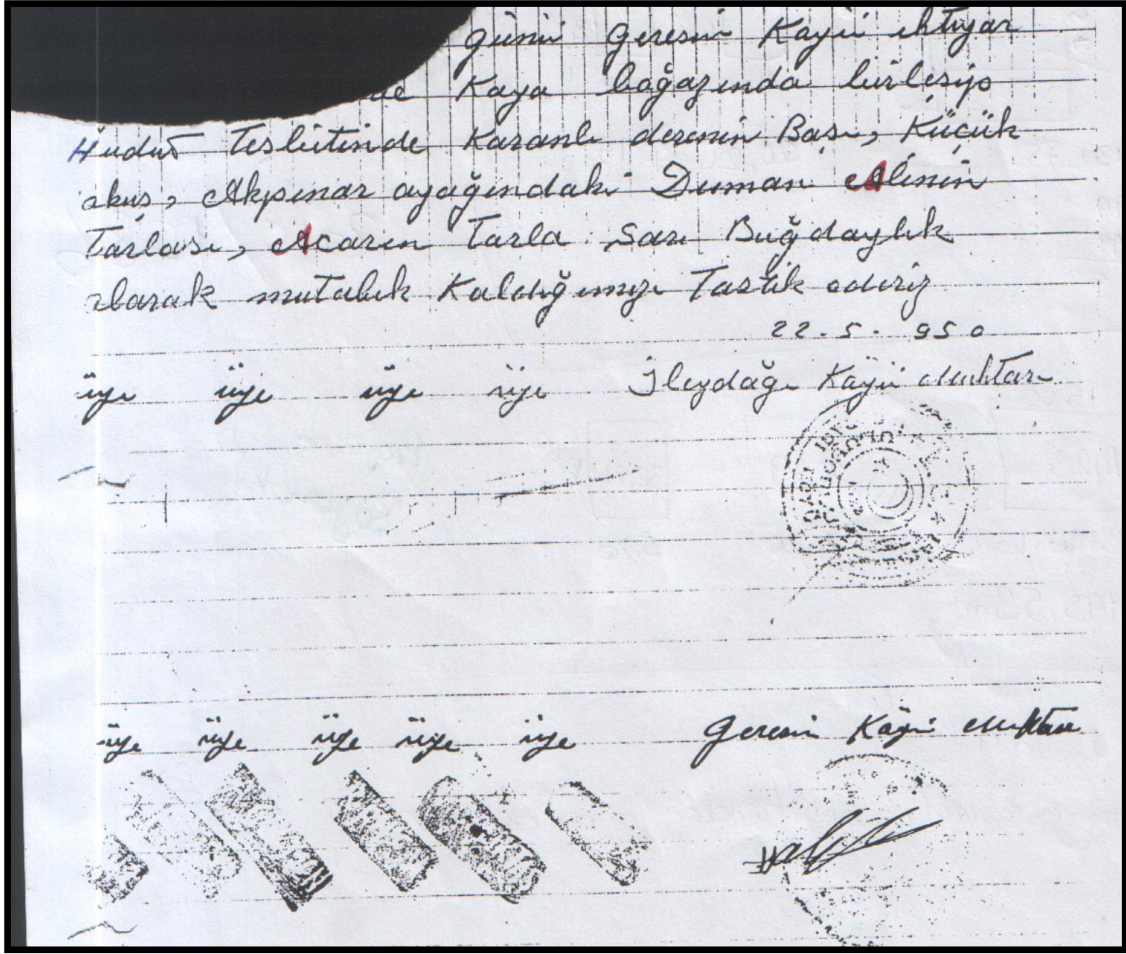 günü Geresin Köyü ihtiyar
Kaya boğazında birleşip
Hudut Tesbitinde Karanlı derenin Başı, Küçük
akus, Akpınar ayağındaki Duman Alinin
Tarlası, Acarın Tarla Sarı Buğdaylık
olarak mutabık Kaldığımızı Tastik ederiz
22.5.950
üye üye üye üye İleydağı Köyü Muhtarı
üye üye üye üye üye Geresin Köyü Muhtarı